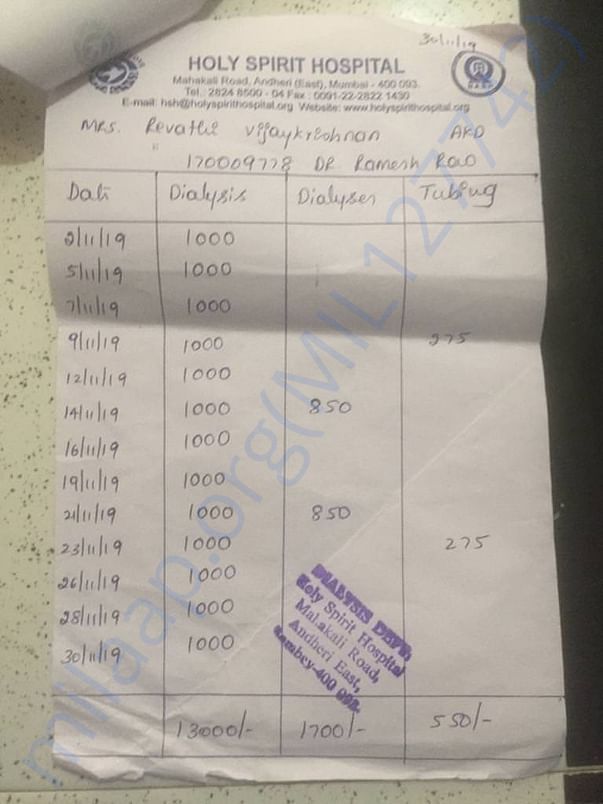 30/11/19
HOLY SPIRIT HOSPITAL
Mahakali Road, Andheri (East), Mumbai - 400 093.
Tel.: 2824 8500 - 04 Fax : 0091-22-2822 1430
E-mail: hsh@holyspirithospital.org Website: www.holyspirithospital.org
MRS. Revathi Vijaykrishnan AKD
170009778 DR Ramesh Rao
Date Dialysis Dialyser Tubing
2/11/19 1000
5/11/19 1000
7/11/19 1000
9/11/19 1000 275
12/11/19 1000
14/11/19 1000 850
16/11/19 1000
19/11/19 1000
21/11/19 1000 850
23/11/19 1000 275
26/11/19 1000
28/11/19 1000
30/11/19 1000
13000/- 1700/- 550/-
DIALYSIS DEPT.
Holy Spirit Hospital
Mahakali Road,
Andheri East,
Bombay-400 093.
milaap.org(MIL127742)